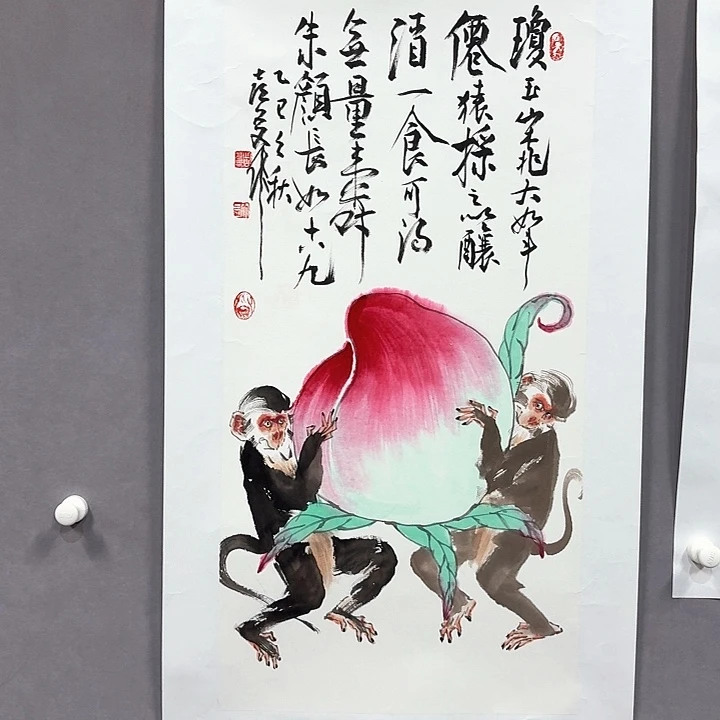 瓊玉山桃大如斗
僊猿採之以釀
酒一食可得
無量壽
朱顏長如十八九
乙巳之秋